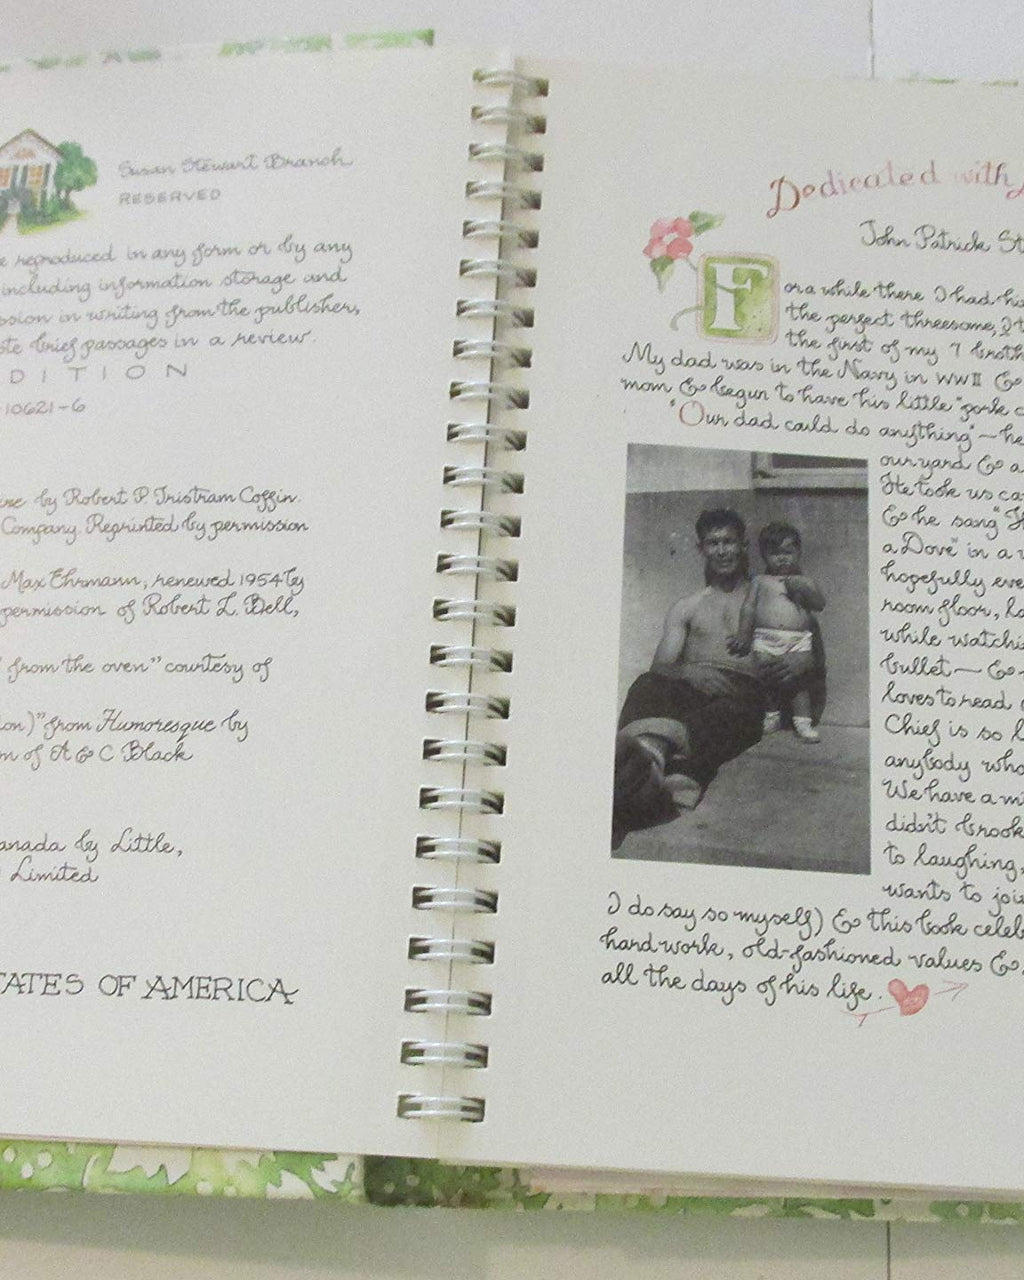 Susan Stewart Branch
RESERVED
reproduced in any form or by any
including information storage and
in writing from the publisher,
brief passages in a review.
DITION
10621-6
by Robert P. Tristram Coffin.
Company. Reprinted by permission
Max Ehrmann, renewed 1954 by
permission of Robert L. Bell,
from the oven" courtesy of
)" from Humoresque by
of A & C Black
by Little,
Limited
OF AMERICA
Dedicated with
John Patrick
For a while there I had
the perfect threesome,
the first of my 7
My dad was in the Navy in WWII &
mom & begun to have his little "pork
"Our dad could do anything" — he
our yard &
He took us
& he sang
a Dove" in a
hopefully
room floor,
while
bullet — &
loves to read
Chief is so
anybody who
We have a
didn't
to laughing,
wants to
I do say so myself) & this book
hard work, old-fashioned values &
all the days of his life.